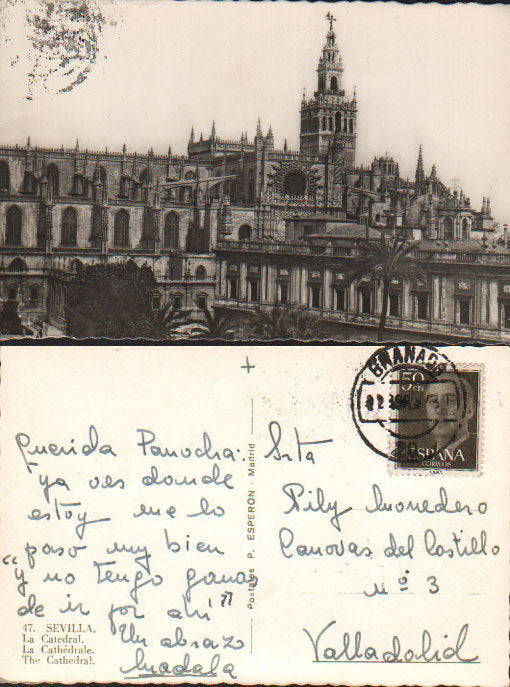 Querida Panocha:
ya ves donde
estoy me lo
paso muy bien
"y no tengo ganas
de ir por ahí"
Un abrazo
47. SEVILLA.
La Catedral.
La Cathédrale.
The Cathedral.
Postales P. ESPERON Madrid
GRANADA
50
CTS
ESPAÑA
CORREOS
Srta
Pily Monedero
Canovas del Castillo
nº 3
Valladolid